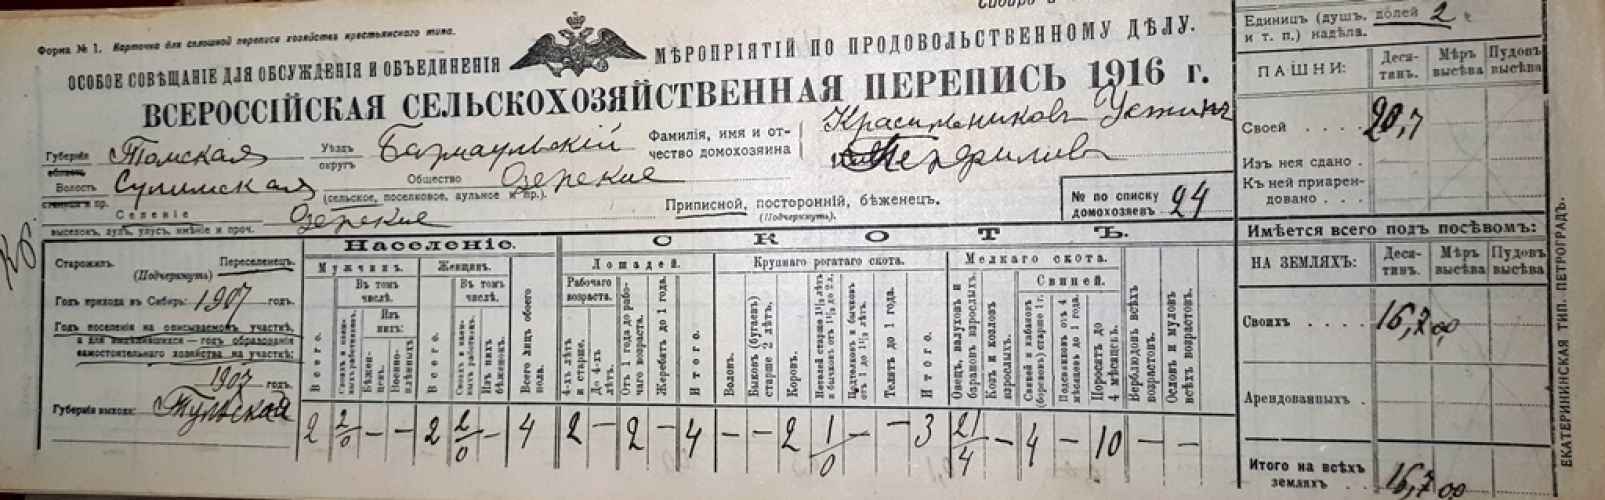 Форма № 1. Карточка для сплошной переписи хозяйствъ крестьянскаго типа.
ОСОБОЕ СОВѢЩАНІЕ ДЛЯ ОБСУЖДЕНІЯ И ОБЪЕДИНЕНІЯ
МѢРОПРІЯТІЙ ПО ПРОДОВОЛЬСТВЕННОМУ ДѢЛУ.
ВСЕРОССІЙСКАЯ СЕЛЬСКОХОЗЯЙСТВЕННАЯ ПЕРЕПИСЬ 1916 г.
Губернія Томская Уѣздъ Барнаульскій Фамилія, имя и от- Красильниковъ Устинъ
область округъ чество домохозяина Перфиловъ
Волость Сузунская Общество Озерские
станица и пр. (сельское, поселковое, аульное и пр.).
Селеніе Озерские Приписной, посторонній, бѣженецъ.
(Подчеркнуть).
выселокъ, аулъ, улусъ, имѣніе и проч.
№ по списку 24
домохозяевъ
Старожилъ. Переселенецъ.
(Подчеркнуть)
Годъ прихода въ Сибирь: 1907 годъ.
Годъ поселенія на описываемомъ участкѣ,
а для выдѣлившихся — годъ образованія
самостоятельнаго хозяйства на участкѣ:
1907 годъ.
Губернія выхода: Тульская
Населеніе.
Мужчинъ.
Всего.
Въ томъ числѣ.
Изъ нихъ:
Женщинъ.
Всего.
Въ томъ числѣ.
Изъ нихъ бѣженокъ.
Всего лицъ обоего пола.
СКОТЪ.
Лошадей.
Рабочаго возраста.
4-хъ лѣтъ и старше.
До 4-хъ лѣтъ.
Отъ 1 года до рабочаго возраста.
Жеребятъ до 1 года.
Итого.
Крупнаго рогатаго скота.
Воловъ.
Быковъ (бугаевъ) старше 2 лѣтъ.
Коровъ.
Нетелей старше 1½ лѣтъ и бычковъ отъ 1½ до 2 л.
Подтелковъ и бычковъ отъ 1 до 1½ лѣтъ.
Телятъ до 1 года.
Итого.
Мелкаго скота.
Овецъ, валуховъ и барановъ взрослыхъ.
Козъ и козловъ взрослыхъ.
Свиней.
Свиней и кабановъ (борововъ) старше 1 г.
Подсвинковъ отъ 4 мѣсяцевъ до 1 года.
Поросятъ до 4 мѣсяцевъ.
Верблюдовъ всѣхъ возрастовъ.
Ословъ и муловъ всѣхъ возрастовъ.
2 2/0 — — 2 2/0 — 4 2 — 2 — 4 — — 2 1/0 — — 3 21/4 — 4 — 10 — —
Единицъ (душъ, долей 2
и т. п.) надѣла.
ПАШНИ: Деся- Мѣръ Пудовъ
тинъ. высѣва высѣва
Своей . . . . 20,7
Изъ нея сдано .
Къ ней приарен-
довано . . .
Имѣется всего подъ посѣвомъ:
НА ЗЕМЛЯХЪ: Деся- Мѣръ Пудовъ
тинъ. высѣва высѣва
Своихъ . . . . 16,7,00
Арендованныхъ .
Итого на всѣхъ
земляхъ . . 16,7,00
ЕКАТЕРИНИНСКАЯ ТИП. ПЕТРОГРАДЪ.